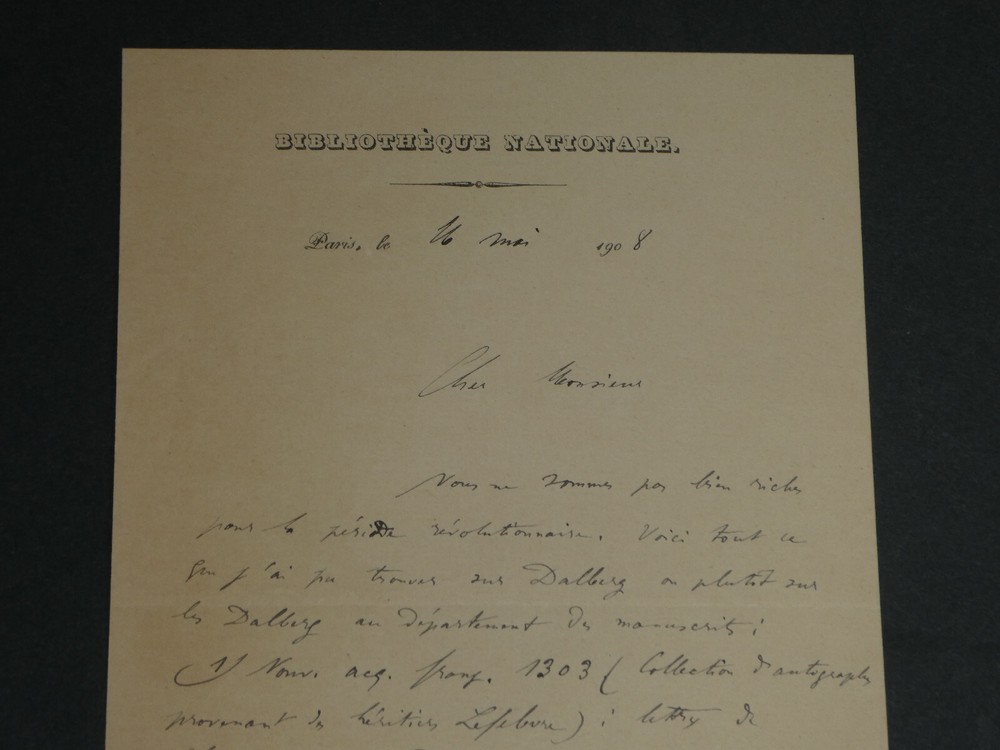 BIBLIOTHÈQUE NATIONALE.
Paris, le 16 mai 1908
Cher Monsieur
Nous ne sommes pas bien riches
pour la période révolutionnaire. Voici tout ce
que j'ai pu trouver sur Dalberg ou plutôt sur
les Dalberg au département des manuscrits :
1) Nouv. acq. franç. 1303 ( Collection d'autographes
provenant des héritiers Lefebvre ) : lettres de